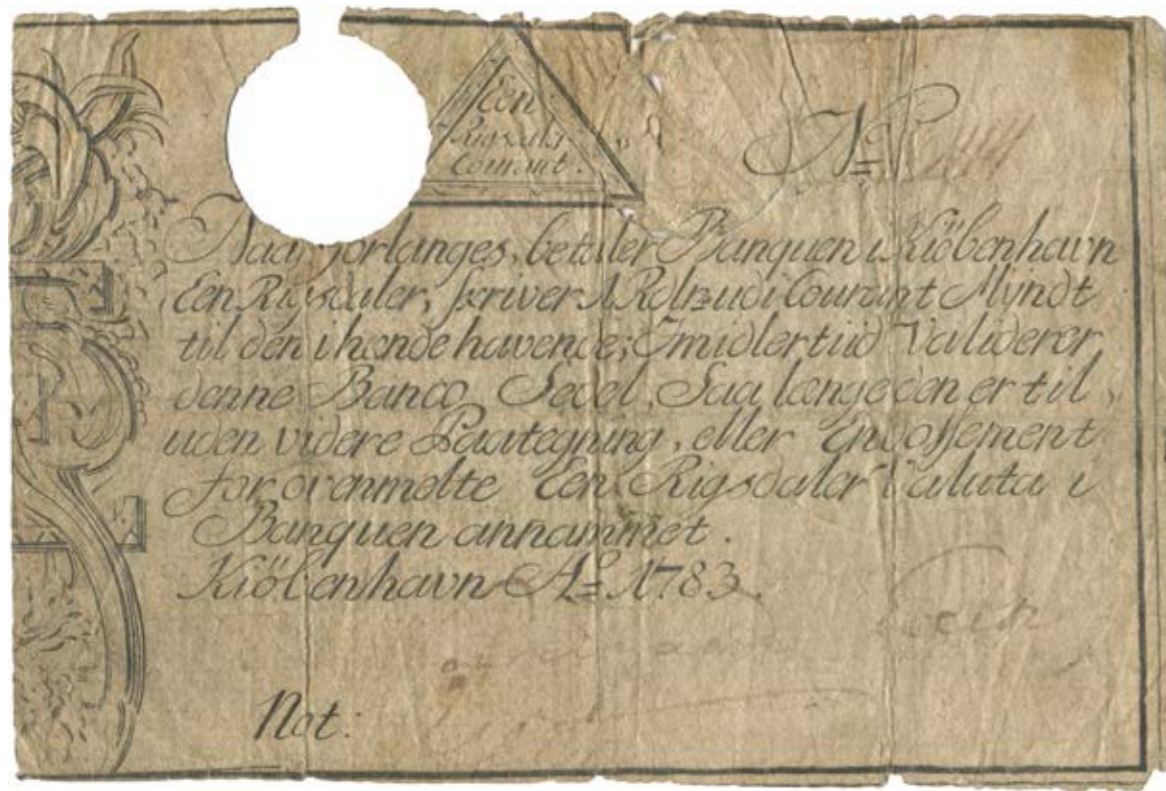 Een
Rigsdaler
Courant.
No
Naar forlanges, betaler Banquen i Kiöbenhavn
Een Rigsdaler, skriver 1 Rdlr. udi Courant Myndt
til den ihændehavende; Imidlertiid Validerer
denne Banco Sedel, Saa længe den er til,
uden videre Paategning, eller Endossement
for ovenmelte Een Rigsdaler Valuta i
Banquen annammet.
Kiöbenhavn Ao 1783.
Not: